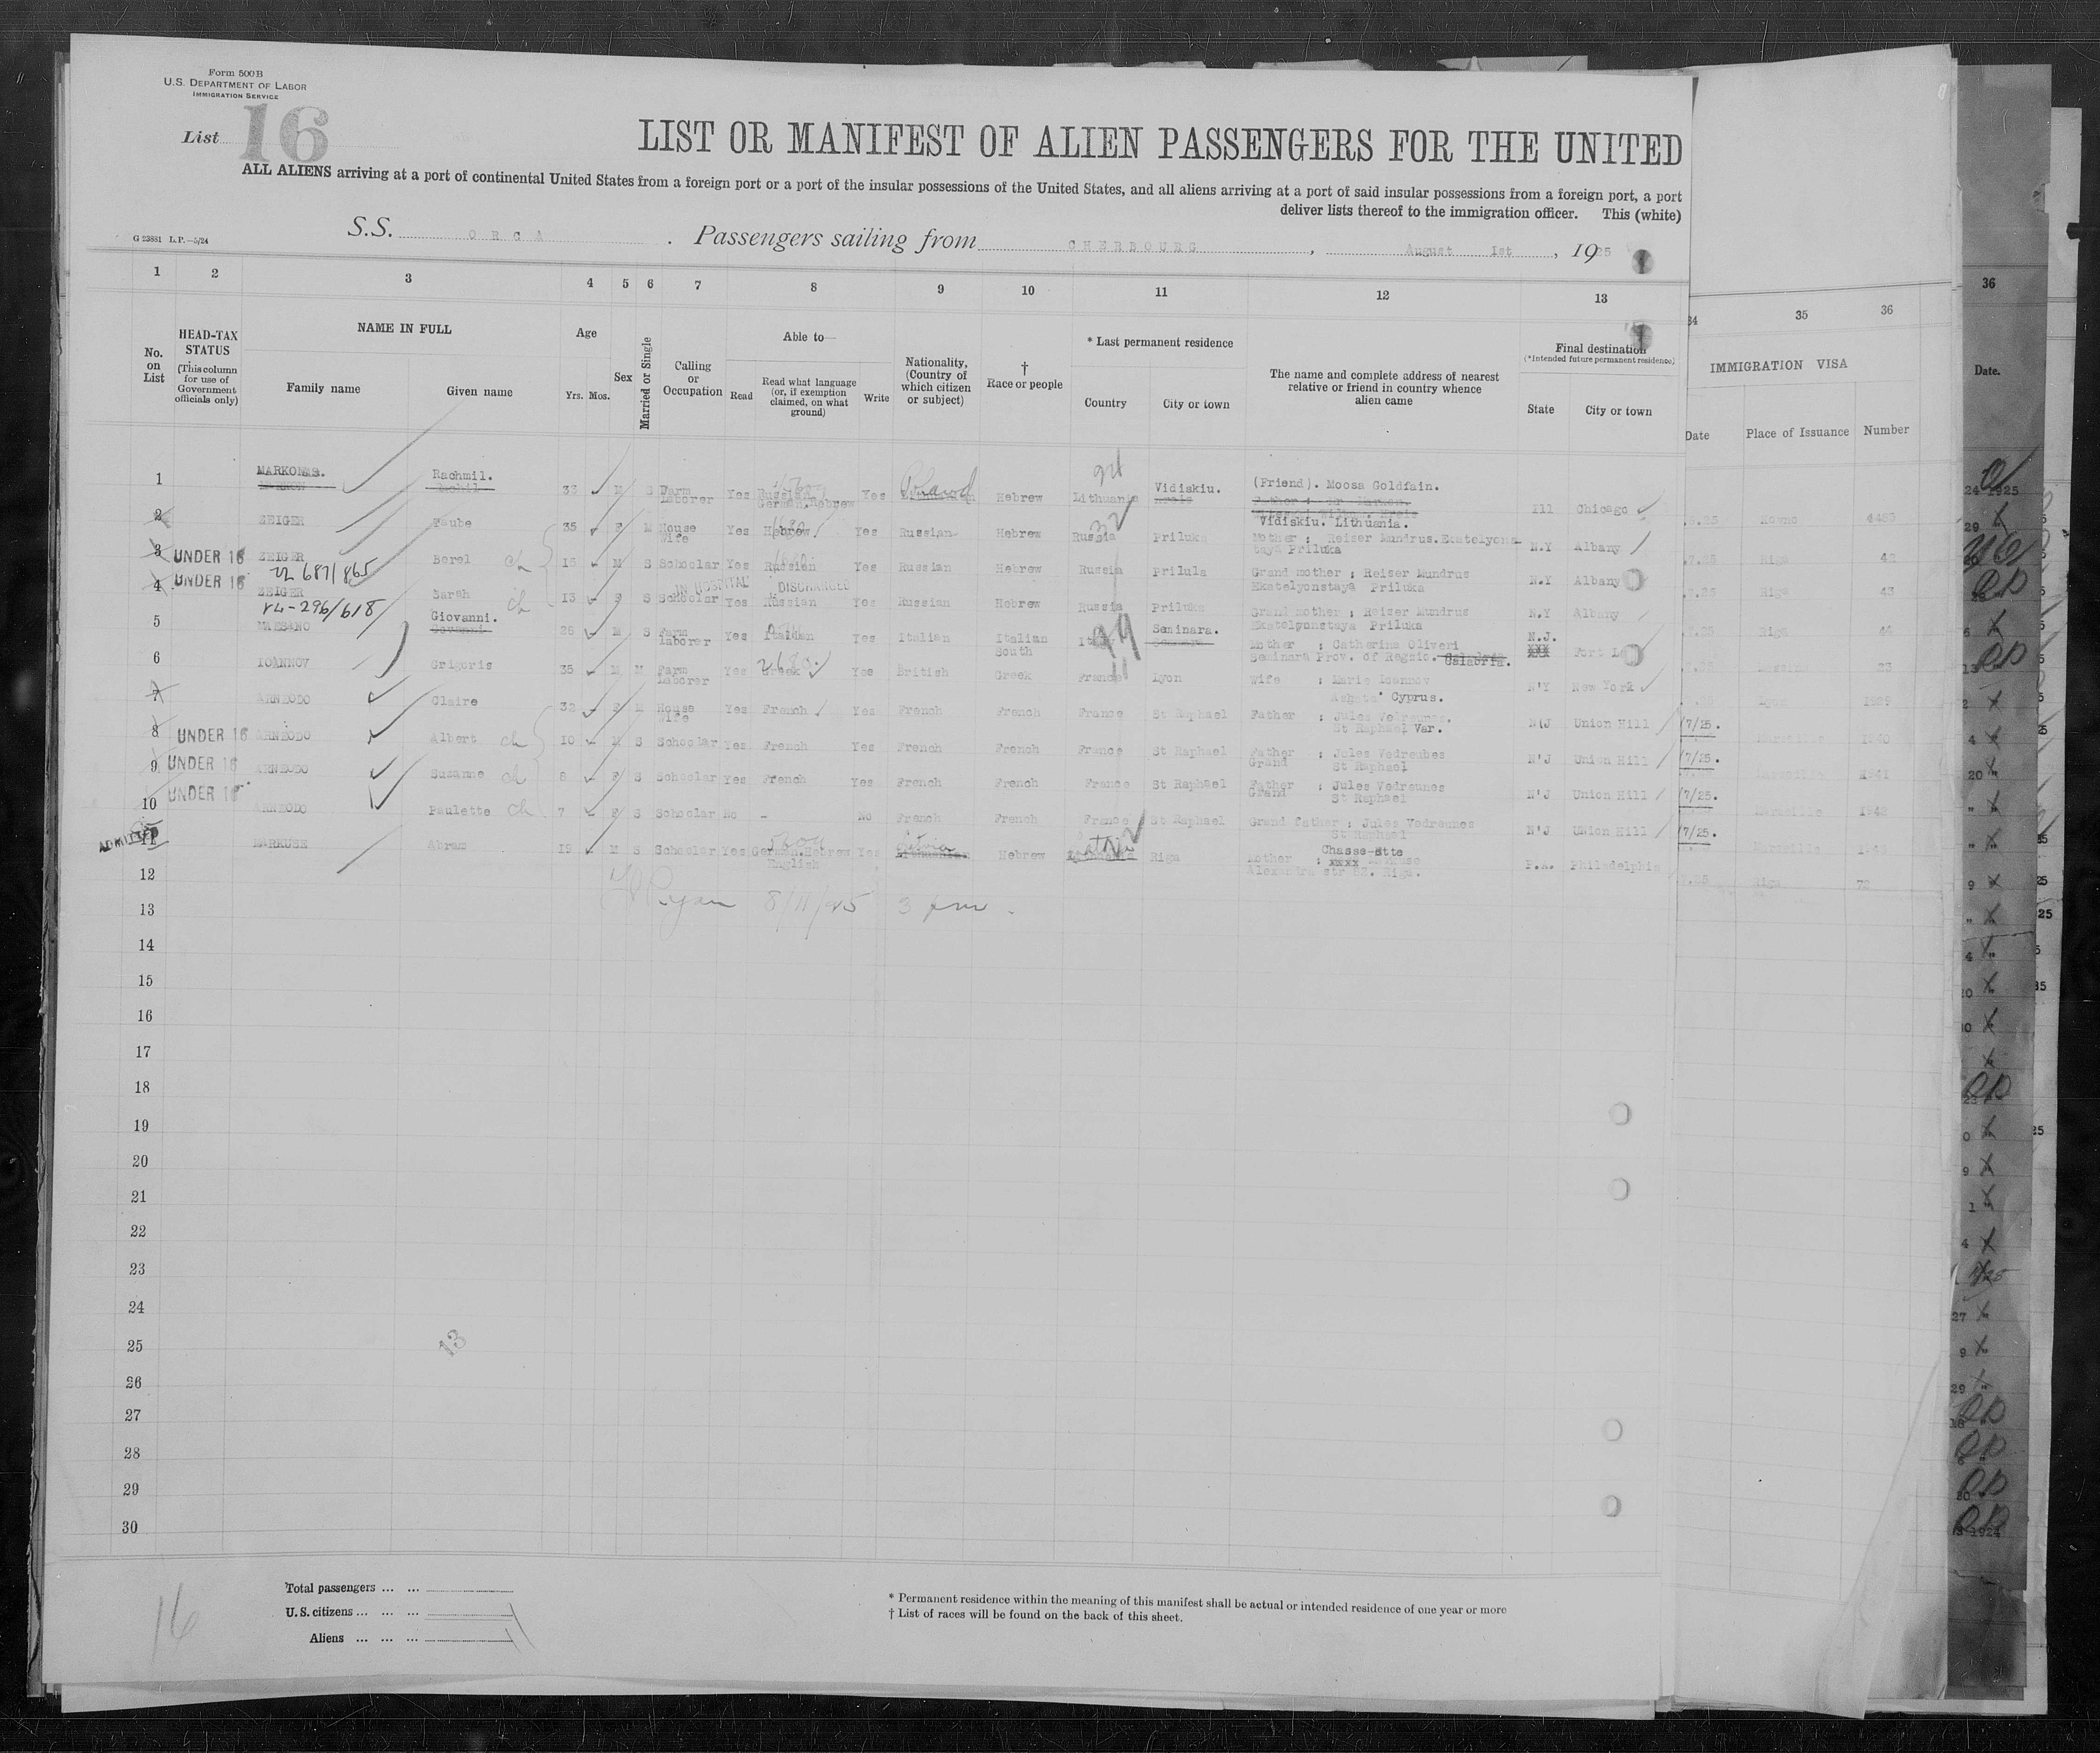 Form 500B
U.S. DEPARTMENT OF LABOR
IMMIGRATION SERVICE
List 16
LIST OR MANIFEST OF ALIEN PASSENGERS FOR THE UNITED
ALL ALIENS arriving at a port of continental United States from a foreign port or a port of the insular possessions of the United States, and all aliens arriving at a port of said insular possessions from a foreign port, a port
deliver lists thereof to the immigration officer. This (white)
G 23881 L.P.—5/24
S.S. ORCA. Passengers sailing from CHERBOURG, August 1st, 1925
1 2 3 4 5 6 7 8 9 10 11 12 13
34 35 36
36
No. on List
HEAD-TAX STATUS
(This column for use of Government officials only)
NAME IN FULL
Family name Given name
Age
Yrs. Mos.
Sex
Married or Single
Calling or Occupation
Able to—
Read
Read what language (or, if exemption claimed, on what ground)
Write
Nationality, (Country of which citizen or subject)
† Race or people
* Last permanent residence
Country City or town
The name and complete address of nearest relative or friend in country whence alien came
Final destination
(*Intended future permanent residence)
State City or town
IMMIGRATION VISA
Date Place of Issuance Number
Date.
1 MARKONAS. Rachmil. M S Farm Laborer Yes Russian German.Hebrew Yes Poland Hebrew Lithuania Vidiskiu. (Friend). Moosa Goldfain. Vidiskiu. Lithuania. Ill Chicago
2 ZEIGER Taube 35 F M House Wife Yes Hebrew Yes Russian Hebrew Russia Priluka Mother : Reiser Mundrus.Ekatelyonstaya Priluka N.Y Albany
3 UNDER 16 ZEIGER Berel ch 15 M S Schoolar Yes Russian Yes Russian Hebrew Russia Prilula Grand mother : Reiser Mundrus Ekatelyonstaya Priluka N.Y Albany
22 687/865
IN HOSPITAL DISCHARGED
4 UNDER 16 ZEIGER Sarah ch 13 F S Schoolar Yes Russian Yes Russian Hebrew Russia Priluka Grand mother : Reizer Mundrus Ekatelponstaya Priluka N.Y Albany
24-296/618
5 MAESANO Giovanni. 28 M S Farm Laborer Yes Italian Yes Italian Italian South Italy Seminara. Mother : Catherina Oliveri Seminara Prov. of Regzio. Calabria. N.J. Fort Lee
6 IOANNOV Grigoris 35 M M Farm Laborer Yes Greek Yes British Greek France Lyon Wife : Marie Ioannov Cyprus. N'Y New York
7 ARNEODO Claire 32 F M House Wife Yes French Yes French French France St Raphael Father : Jules Vedreunes. St Raphael Var. N(J Union Hill
8 UNDER 16 ARNEODO Albert ch 10 M S Schoolar Yes French Yes French French France St Raphael Grand Father : Jules Vedreubes St Raphael N'J Union Hill
9 UNDER 16 ARNEODO Suzanne ch 8 F S Schoolar Yes French Yes French French France St Raphael Grand Father : Jules Vedreunes St Raphael N'J Union Hill
10 UNDER 16 ARNEODO Paulette ch 7 F S Schoolar No - No French French France St Raphael Grand father : Jules Vedreunes St Raphael N'J Union Hill
ADMITTED
11 MARKUSE Abram M S Schoolar Yes German.Hebrew English Yes Latvia Hebrew Latvia Riga Mother : Chasse-Ette Alexandra str 82. Riga. P.a. Philadelphia
12
Ryan 8/11/25 3 pm.
13
14
15
16
17
18
19
20
21
22
23
24
25
13
26
27
28
29
30
16
Total passengers ... ...
U.S. citizens ... ... ...
Aliens ... ... ...
* Permanent residence within the meaning of this manifest shall be actual or intended residence of one year or more
† List of races will be found on the back of this sheet.